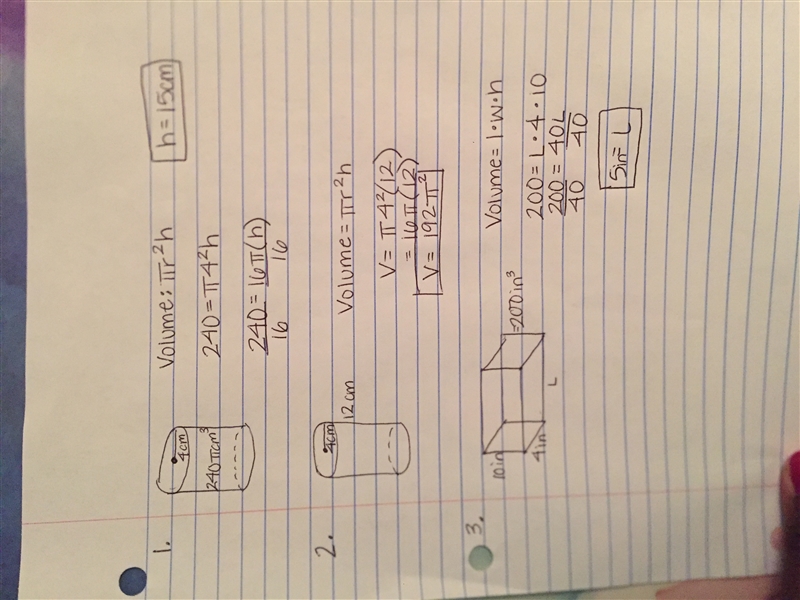 1.
4cm
240πcm³
Volume: πr²h
240 = π4²h
240 = 16π(h)
16 16
h = 15cm
2.
4cm
12cm
Volume = πr²h
V = π4²(12)
= 16π(12)
V = 192π²
3.
10in
4in
L
=200in³
Volume = l·w·h
200 = L·4·10
200 = 40L
40 40
5in = L